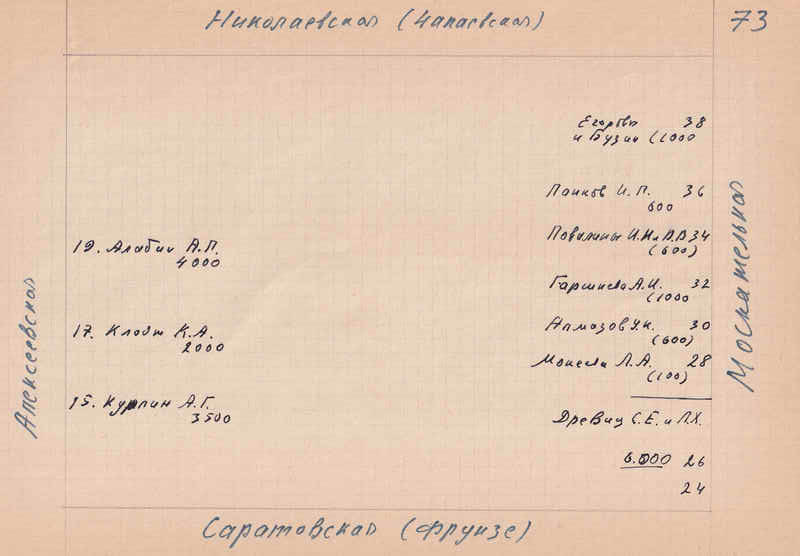 Николаевская (Чапаевская)
73
Егоровы 38
и Бузин (1000
Панков И. П. 36
600
19. Алабин А.П.
4000
И.Н и В.В 34
(600)
Алексеевская
Москательная
А.И. 32
(1000
17. Клодт К.А.
2000
Алмазов У.К. 30
(600)
Л.А. 28
(100)
15. Курлин А.Г.
3500
Древиц С.Е. и Л.Х.
6.000 26
24
Саратовская (Фрунзе)